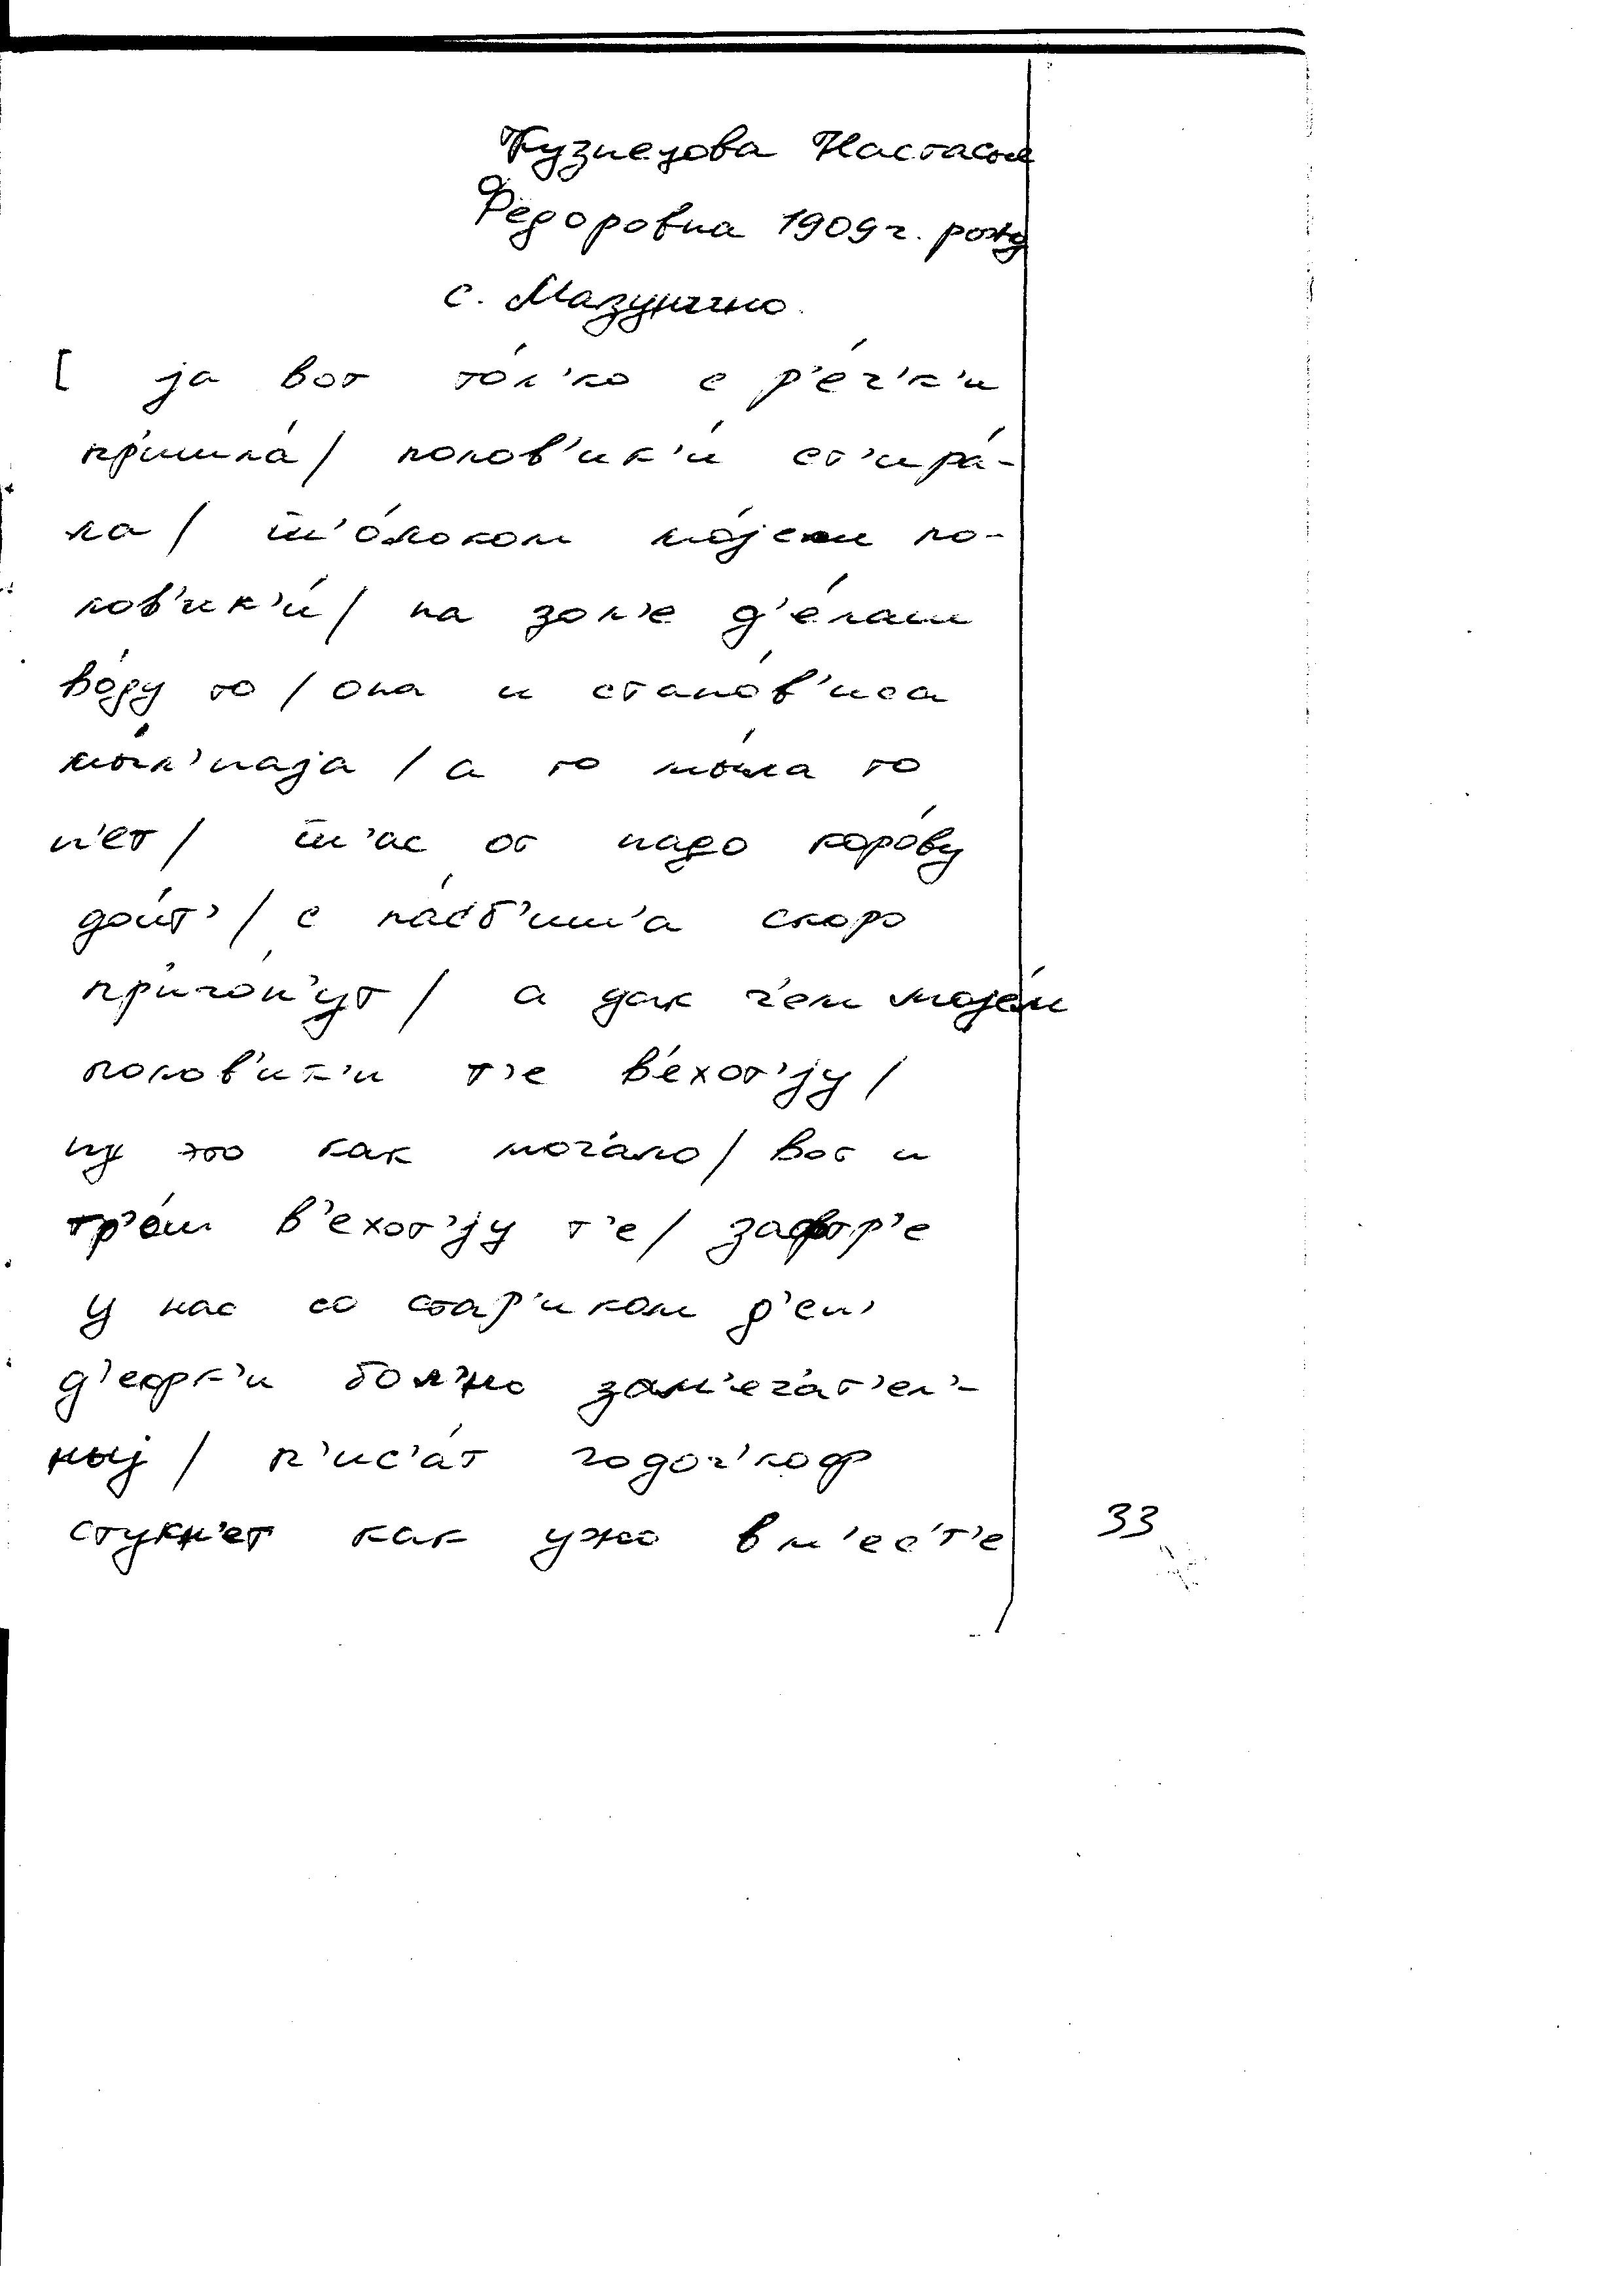 Кузнецова Настасья
Фёдоровна 1909 г. рожд
с. Мазунино.
[ jа вот то́л'ко с р'е́ч'к'и
пр'ишла́ / полов'ик'и́ ст'ира́-
ла / ш̅'о́локом мо́јем по-
лов'ик'и́ / на зол'е д'е́лаш
во́ду то / она и стано́в'иса
мы́л'наjа / а то мы́ла то
н'ет / ш̅'ас от надо коро́ву
дои́т' / с па́с'т'иш'а скоро
пр'иго́н'ут / а дак ч'ем мојем
полов'ик'и т'е в'е́хот'jу /
ну это как моч'ало / вот и
тр'о́ш в'ехот'jу т'е / зафтр'е
у нас со стар'иком д'ен'
д'еорк'и бол'но зам'еч'ат'ел'-
ныj / п'ис'а́т годоч'коф
стукн'ет как ужо вм'ес'т'е
33